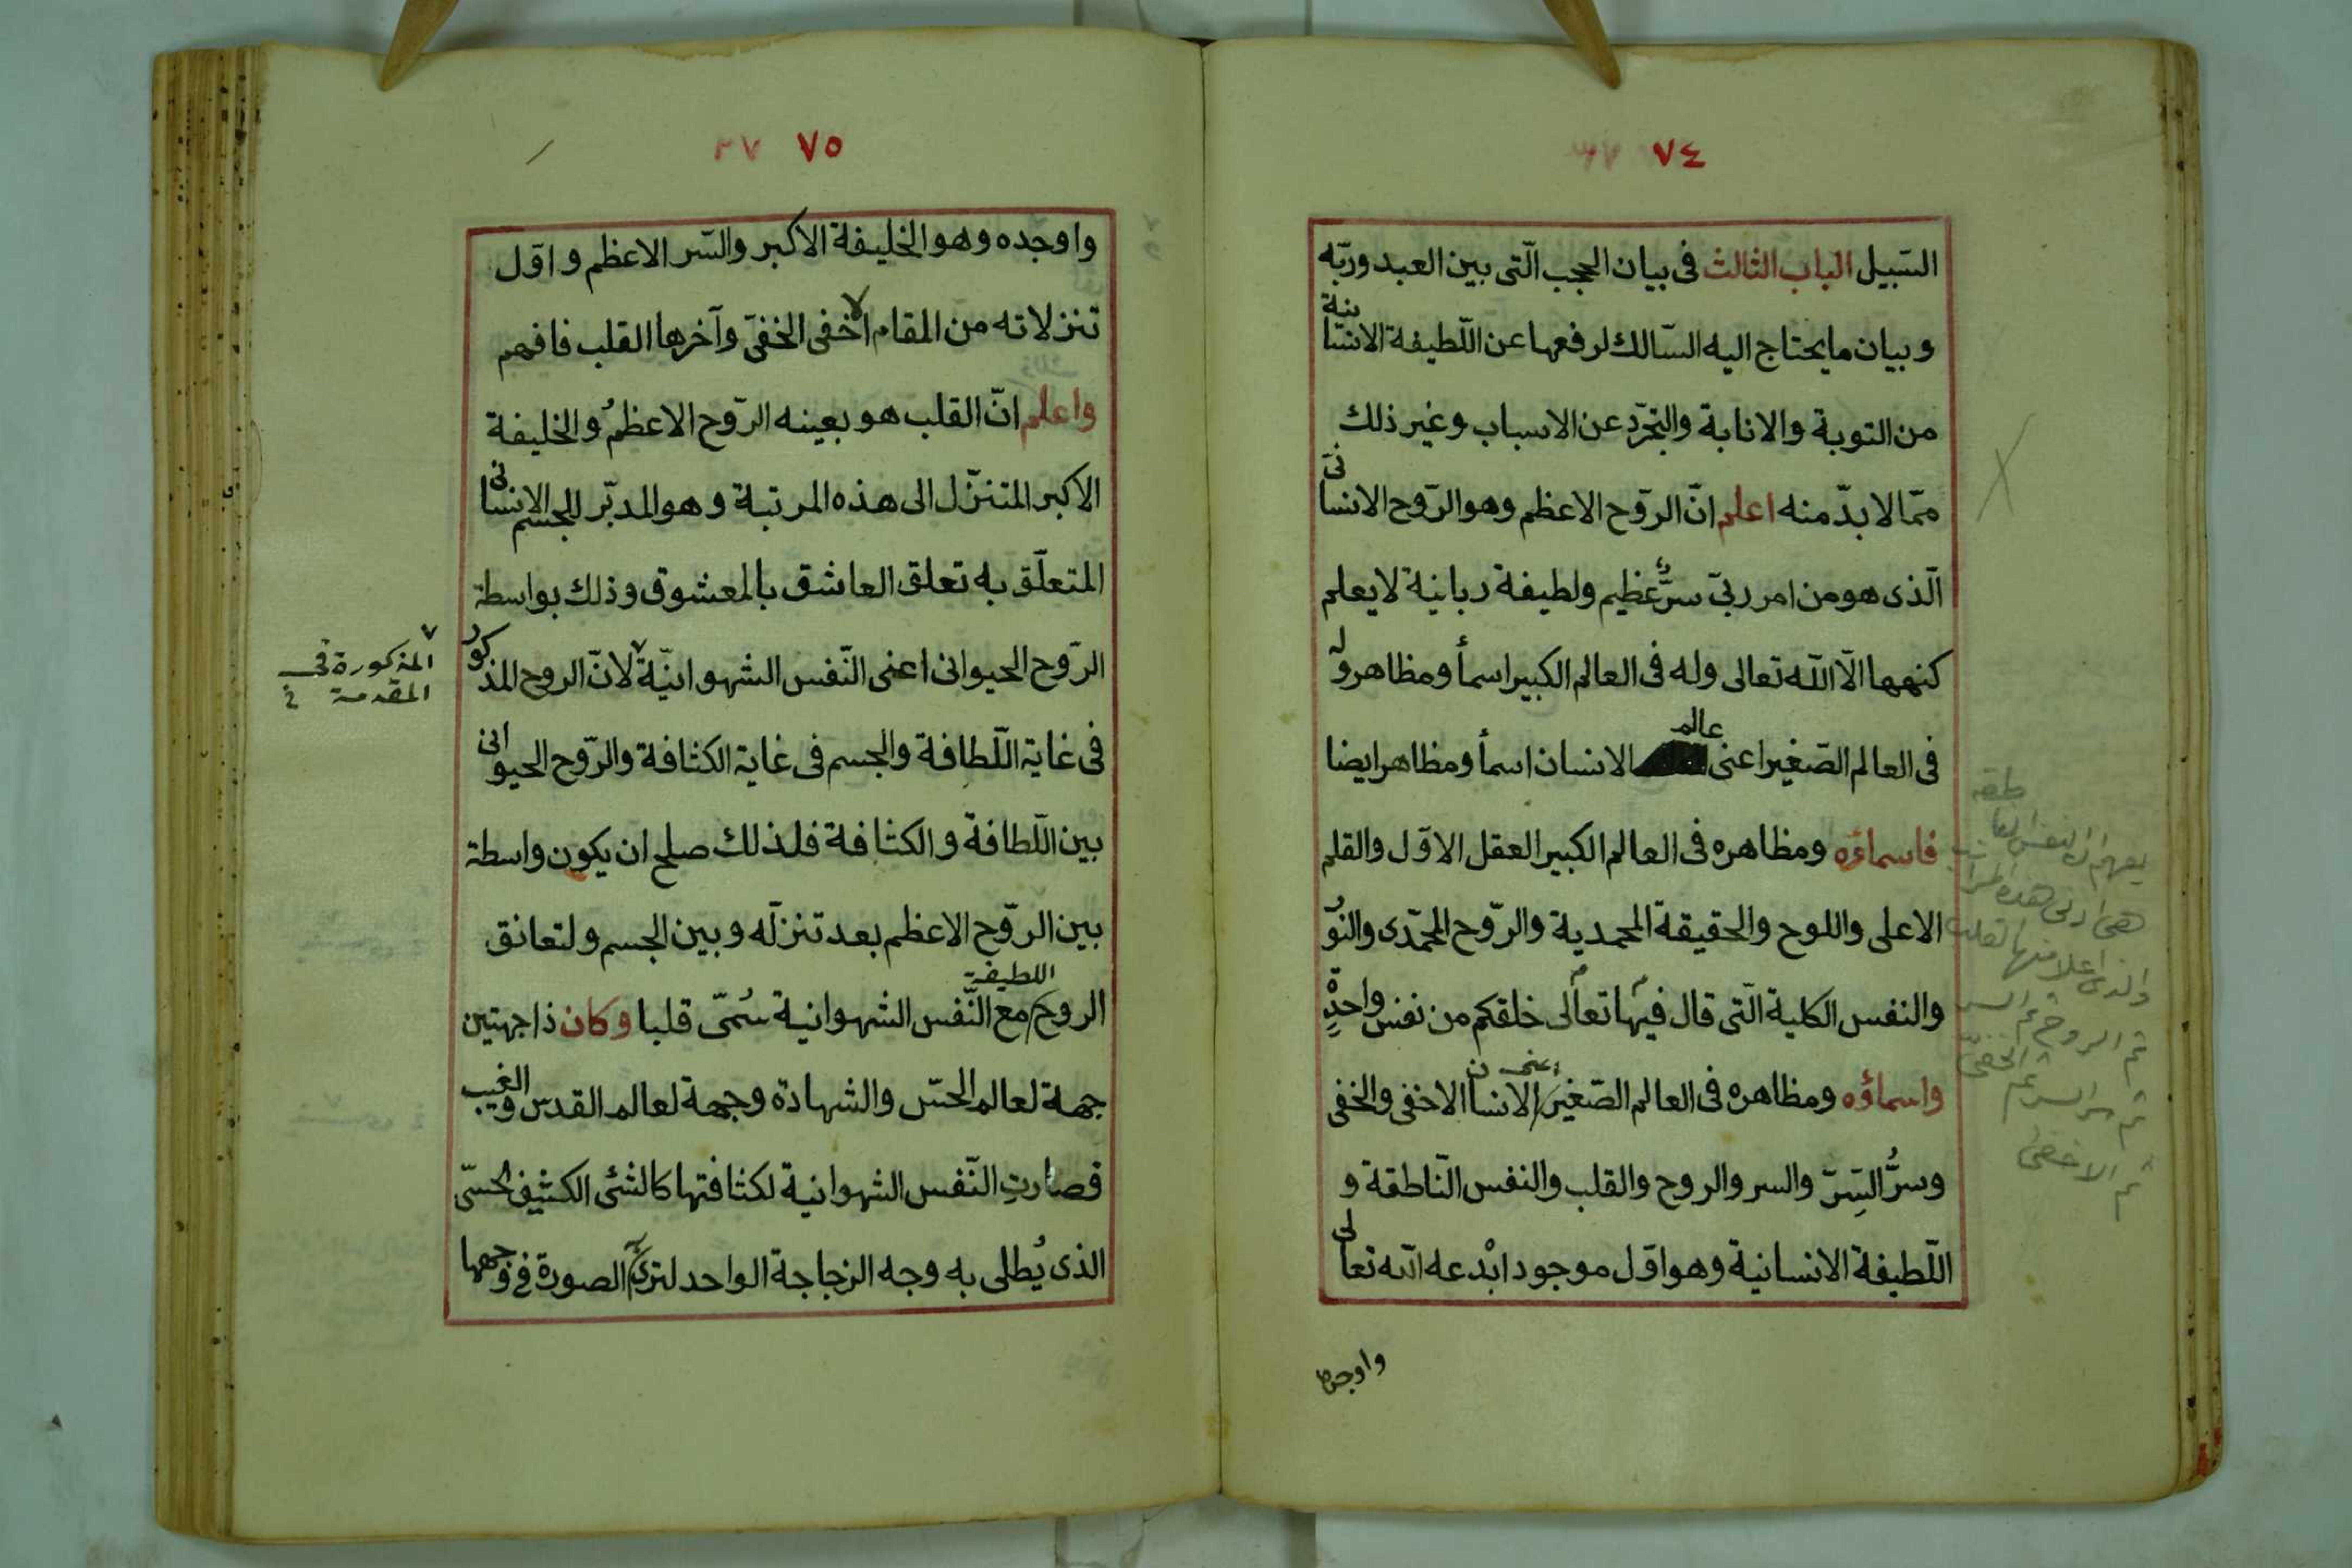 ٧٤
السّبيل الباب الثالث فى بيان الحجب الّتى بين العبد وربّه
وبيان ما يحتاج اليه السّالك لرفعها عن اللّطيفة الانسانية
من التوبة والانابة والتجرّد عن الاسباب وغير ذلك
ممّا لا بدّ منه اعلم انّ الرّوح الاعظم وهو الرّوح الانسانىّ
الّذى هو من امر ربىّ سرٌّ عظيم ولطيفة ربانية لا يعلم
كنهها الّا اللّه تعالى وله فى العالم الكبير اسمأ ومظاهر وله
فى العالم الصّغير اعنى عالم الانسان اسمأ ومظاهر ايضا
فاسماؤه ومظاهره فى العالم الكبير العقل الاوّل والقلم
الاعلى واللوح والحقيقة المحمدية والرّوح المحمّدى والنوّر
والنفس الكلية الّتى قال فيها تعالى خلقكم من نفس واحدةٍ
واسماؤه ومظاهره فى العالم الصّغير اعنى الانسان الاخفى والخفى
وسرُّ السِّرّ والسر والروح والقلب والنفس النّاطقة و
اللّطيفة الانسانية وهو اوّل موجود ابْدعه اللّه تعالى
واوجده
يفهم ان النفس الناطقه
هى ادنى هذه المراتب
والذى اعلا منها القلب
ثم الروح ثم السر
ثم سر السر ثم الخفىّ
ثم الاخفى
٧٥
واوجده وهو الخليفة الاكبر والسّر الاعظم واوّل
تنزلاته من المقام الاخفى الخفىّ وآخرها القلب فافهم
واعلم انّ القلب هو بعينه الرّوح الاعظمُ والخليفة
الاكبر المتنزّل الى هذه المرتبة وهو المدبّر للجسم الانسانى
المتعلّق به تعلق العاشق بالمعشوق وذلك بواسطة
الرّوح الحيوانى اعنى النّفس الشهوانيّة لانّ الروح المذكور
فى غاية اللّطافة والجسم فى غاية الكثافة والرّوح الحيوانى
بين اللّطافة والكثافة فلذلك صلح ان يكون واسطة
بين الرّوح الاعظم بعد تنزلّه وبين الجسم ولتعانق
الروح اللطيفة مع النّفس الشهوانية سُمّى قلبا وكان ذا جهتين
جهة لعالم الحسّ والشهادة وجهة لعالم القدس والغيب
فصارتِ النّفس الشهوانية لكثافتها كالشئ الكثيف الحسّى
الذى يُطلى به وجه الزجاجة الواحد لترى الصورة فى وجهها
المذكورة فى
المقدمة